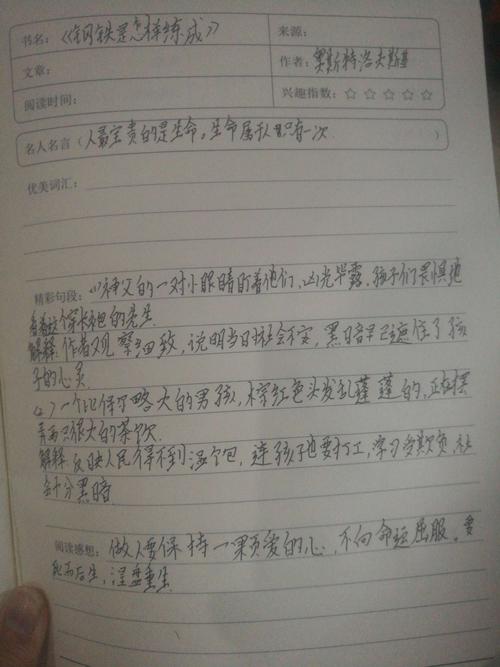 书名：《钢铁是怎样练成》
来源：
文章：
作者：奥斯特洛夫斯基
阅读时间：
兴趣指数：☆☆☆☆☆
名人名言（人最宝贵的是生命。生命属于人只有一次 ）
优美词汇：
精彩句段：(1)神父的一对小眼睛盯着他们，凶光毕露。孩子们畏惧地
看着这个穿长袍的先生
解释：作者观察细致，说明当时社会不安，黑暗早已遮住了孩
子的心灵
(2)一个比保尔略大的男孩，棕红色头发乱蓬蓬的，正在摆
弄两只很大的茶饮
解释：反映人民得不到温饱，连孩子也要打工，
会十分黑暗
阅读感想：做人要保持一颗爱的心，不向命运屈服。要
死而后生，涅盘重生